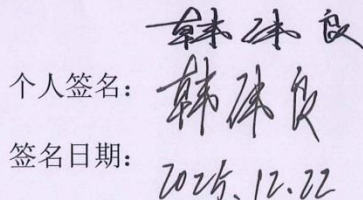 韩沐良
个人签名：韩沐良
签名日期：2025.12.22